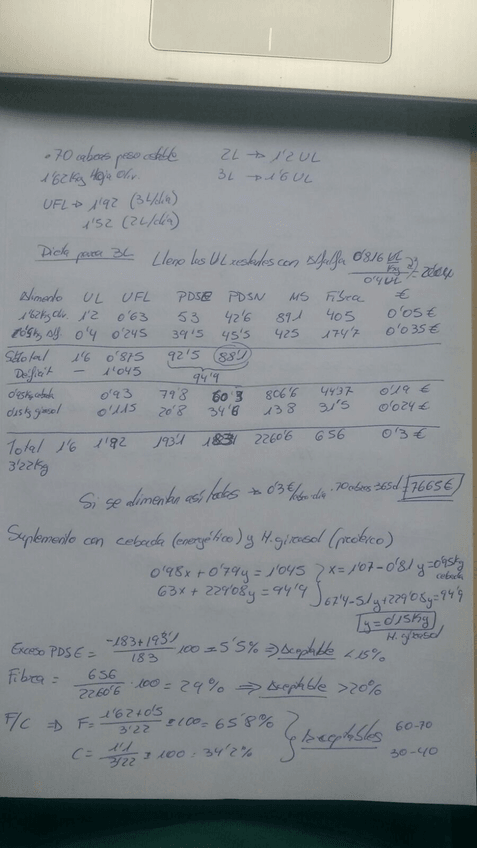 • 70 cabras peso estable 2L → 1'2 UL
1'62 kg Hoja Oliv. 3L → 1'6 UL
UFL → 1'92 (3L/día)
1'52 (2L/día)
Dieta para 3L Lleno las UL restantes con Alfalfa 0'816 UL/kg
0'4 UL
Alimento UL UFL PDSE PDSN MS Fibra €
1'62kg Oliv. 1'2 0'63 53 42'6 891 405 0'05€
0'5kg Alf. 0'4 0'245 39'5 45'5 425 174'7 0'035€
Subtotal 1'6 0'875 92'5 88'1
Déficit — 1'045 94'9
0'95kg cebada 0'93 79'8 60'3 806'6 44'37 0'19 €
0'15kg girasol 0'115 20'8 34'6 138 31'5 0'024€
Total 1'6 1'92 193'1 183 2260'6 656 0'3 €
3'22kg
Si se alimentan así todas → 0'3€/cabra·día · 70 cabras · 365d 7665€
Suplemento con cebada (energético) y H. girasol (proteico)
0'98x + 0'79y = 1'045 x = 1'07 - 0'81y = 0'95kg cebada
63x + 229'08y = 94'9 67'4 - 51y + 229'08y = 94'9
y = 0'15kg
H. girasol
Exceso PDSE = -183+193'1/183 · 100 = 5'5% ⇒ Aceptable < 15%
Fibra = 656/2260'6 · 100 = 29% ⇒ Aceptable > 20%
F/C ⇒ F = 1'62+0'5/3'22 · 100 = 65'8% Aceptables 60-70
C = 1'1/3'22 · 100 = 34'2% 30-40